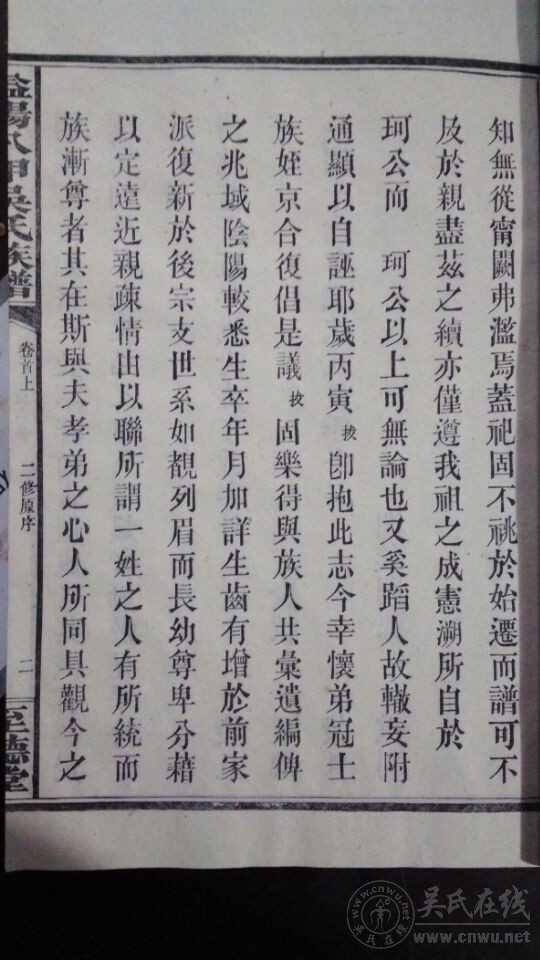 知無從甯闕弗濫焉蓋祀固不祧於始遷而譜可不
及於親盡茲之續亦僅遵我祖之成憲溯所自於
珂公而　珂公以上可無論也又奚蹈人故轍妄附
通顯以自誣耶歲丙寅 拔 卽抱此志今幸懷弟冠士
族姪京合復倡是議 拔 固樂得與族人共彙遺編俾
之兆域陰陽較悉生卒年月加詳生齒有增於前家
派復新於後宗支世系如覩列眉而長幼尊卑分藉
以定遠近親疎情由以聯所謂一姓之人有所統而
族漸尊者其在斯與夫孝弟之心人所同具觀今之
吳氏族譜
卷首上
二修原序
二
至德堂
www.cnwu.net
吴氏在线
吴氏在线
www.cnwu.net